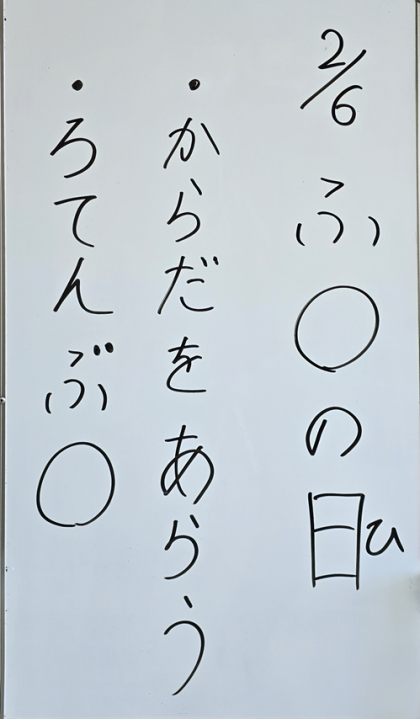 2/6 ふ〇の日ひ
・からだをあらう
・ろてんぶ〇